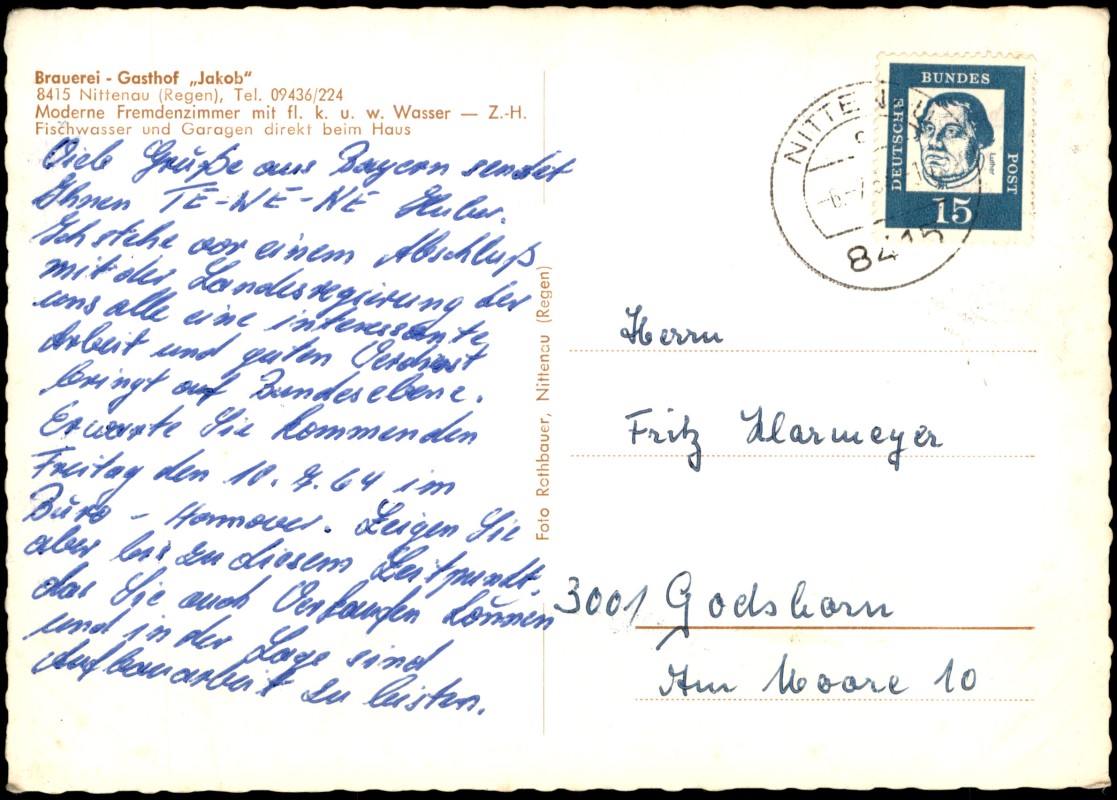 Brauerei - Gasthof „Jakob"
8415 Nittenau (Regen), Tel. 09436/224
Moderne Fremdenzimmer mit fl. k. u. w. Wasser — Z.-H.
Fischwasser und Garagen direkt beim Haus
Viele Grüße aus Bayern sendet
Ihnen TE-WE-NE Huber.
Ich stehe vor einem Abschluß
mit der Landesregierung der
uns alle eine interessante
Arbeit und guten Verdienst
bringt auf Bundesebene.
Erwarte Sie kommenden
Freitag den 10.7.64 im
Büro - Hannover. Zeigen Sie
aber bis zu diesem Zeitpunkt,
das Sie auch Verkaufen können
und in der Lage sind
Aufbauarbeit zu leisten.
Foto Rathbauer, Nittenau (Regen)
NITTENAU
8415
DEUTSCHE
BUNDES
POST
Luther
15
Herrn
Fritz Klarmeyer
3001 Godshorn
Am Moore 10